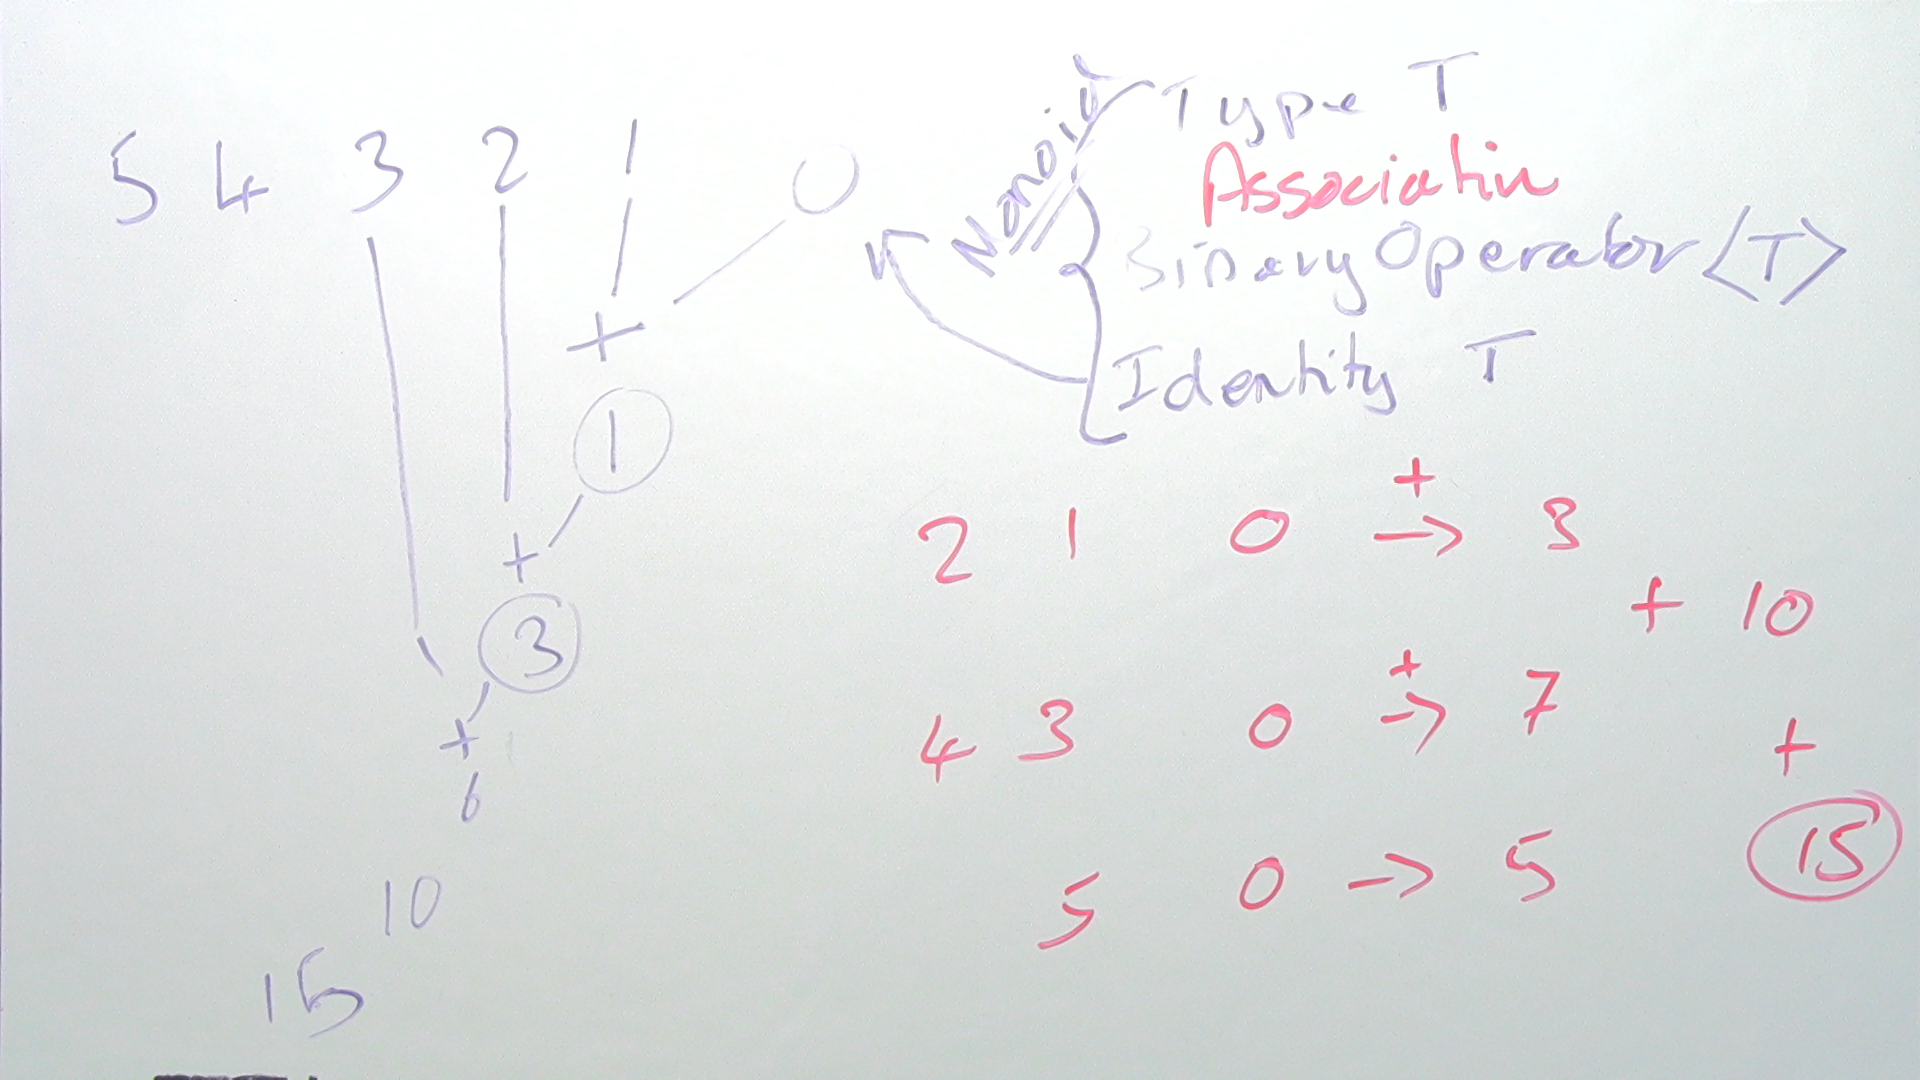 5 4 3 2 1 0
+
1
+
3
+
6
10
15
Monoid
Type T
Associativ
Binary Operator <T>
Identity T
2 1 0 + → 3
+ 10
4 3 0 + → 7
+
5 0 → 5
15